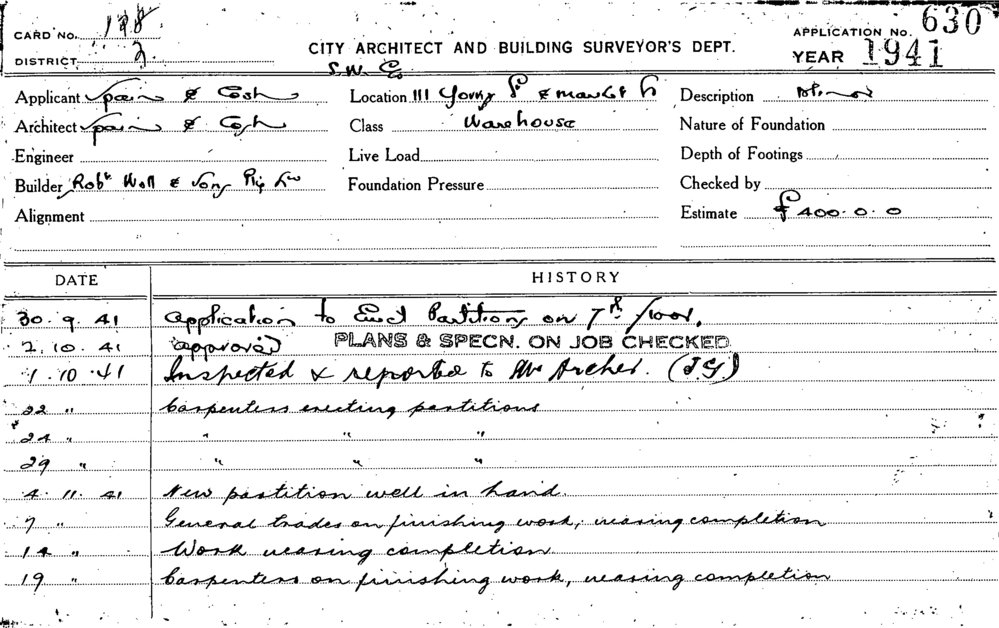 CARD NO. 198
APPLICATION NO. 630
DISTRICT 2
CITY ARCHITECT AND BUILDING SURVEYOR'S DEPT.
YEAR 1941
S.W. Co
Applicant Spain & Cosh
Location 111 York St & Market St
Description
Architect Spain & Cosh
Class Warehouse
Nature of Foundation
Engineer
Live Load
Depth of Footings
Builder Robt Wall & Sons Pty Ltd
Foundation Pressure
Checked by
Alignment
Estimate £400.0.0
DATE HISTORY
30.9.41 Application to Erect Partitions on 7th floor.
2.10.41 Approved PLANS & SPECN. ON JOB CHECKED
1.10.41 Inspected & reported to Mr Archer. (J.G)
22 " Carpenters erecting partitions
24 " " " "
29 " " " "
4.11.41 New partition well in hand.
7 " General trades on finishing work, nearing completion
14 " Work nearing completion
19 " Carpenters on finishing work, nearing completion